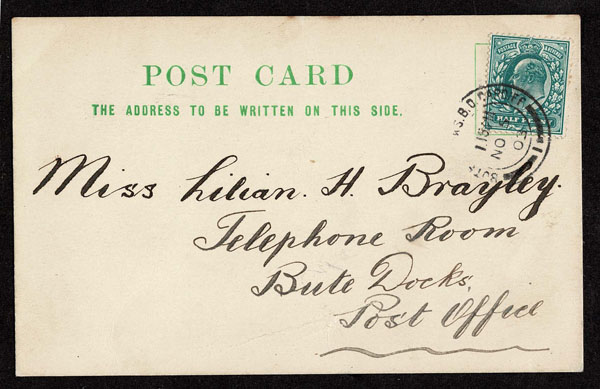 POST CARD
THE ADDRESS TO BE WRITTEN ON THIS SIDE.
POSTAGE
HALF
S.B.O. CARDIFF
1.15
NO
03
BUTE
1
Miss Lilian. H. Brayley.
Telephone Room
Bute Docks,
Post Office